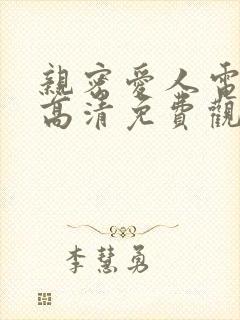 親密愛人電
高清免費觀
李慧勇